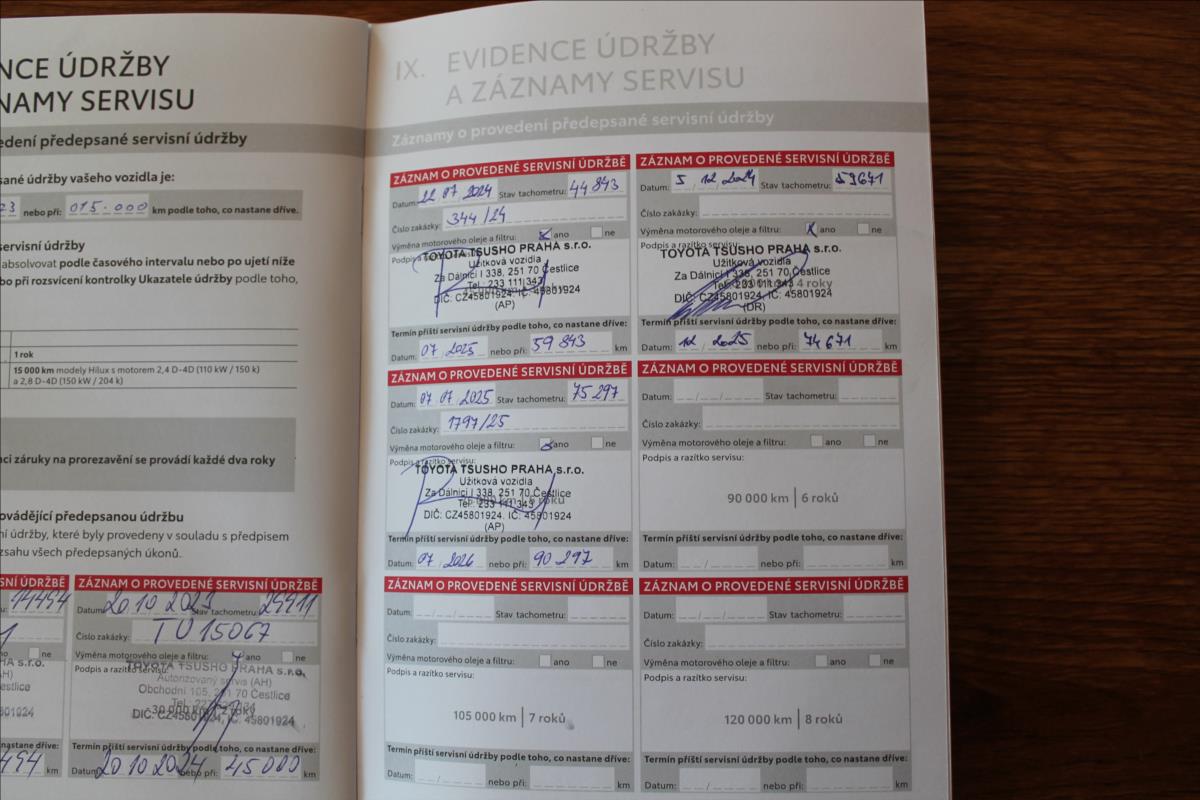 NCE ÚDRŽBY
NAMY SERVISU
edení předepsané servisní údržby
sané údržby vašeho vozidla je:
23 nebo při: 015.000 km podle toho, co nastane dříve.
servisní údržby
absolvovat podle časového intervalu nebo po ujetí níže
bo při rozsvícení kontrolky Ukazatele údržby podle toho,
1 rok
15 000 km modely Hilux s motorem 2,4 D-4D (110 kW / 150 k)
a 2,8 D-4D (150 kW / 204 k)
nci záruky na prorezavění se provádí každé dva roky
ovádějící předepsanou údržbu
ní údržby, které byly provedeny v souladu s předpisem
zsahu všech předepsaných úkonů.
SNÍ ÚDRŽBĚ
14494
no ne
HA s.r.o.
estlice
5801924
nastane dříve:
494 km
ZÁZNAM O PROVEDENÉ SERVISNÍ ÚDRŽBĚ
Datum: 20 10 2023 Stav tachometru: 29911
Číslo zakázky: TU 15067
Výměna motorového oleje a filtru: ano ne
Podpis a razítko servisu:
TOYOTA TSUSHO PRAHA s.r.o.
Autorizovaný servis (AH)
Obchodní 105, 251 70 Čestlice
30 000 km 2 roky
DIČ: CZ45801924, IČ: 45801924
Termín příští servisní údržby podle toho, co nastane dříve:
Datum: 20 10 2024 nebo při: 45000 km
IX. EVIDENCE ÚDRŽBY
A ZÁZNAMY SERVISU
Záznamy o provedení předepsané servisní údržby
ZÁZNAM O PROVEDENÉ SERVISNÍ ÚDRŽBĚ
Datum: 22 07 2024 Stav tachometru: 44 843
Číslo zakázky: 344/24
Výměna motorového oleje a filtru: ano ne
Podpis a
TOYOTA TSUSHO PRAHA s.r.o.
Užitková vozidla
Za Dálnicí I 338, 251 70 Čestlice
Tel.: 233 111 343
DIČ: CZ45801924, IČ: 45801924
(AP)
Termín příští servisní údržby podle toho, co nastane dříve:
Datum: 07 2025 nebo při: 59 843 km
ZÁZNAM O PROVEDENÉ SERVISNÍ ÚDRŽBĚ
Datum: 5 12 2024 Stav tachometru: 59671
Číslo zakázky:
Výměna motorového oleje a filtru: x ano ne
Podpis a razítko servisu:
TOYOTA TSUSHO PRAHA s.r.o.
Užitková vozidla
Za Dálnicí I 338, 251 70 Čestlice
Tel.: 233 111 343 4 roky
DIČ: CZ45801924, IČ: 45801924
(DR)
Termín příští servisní údržby podle toho, co nastane dříve:
Datum: 12 2025 nebo při: 74 671 km
ZÁZNAM O PROVEDENÉ SERVISNÍ ÚDRŽBĚ
Datum: 07 07 2025 Stav tachometru: 75 297
Číslo zakázky: 1797/25
Výměna motorového oleje a filtru: ano ne
Podpis a razítko servisu:
TOYOTA TSUSHO PRAHA s.r.o.
Užitková vozidla
Za Dálnicí I 338, 251 70 Čestlice
Tel.: 233 111 343 roků
DIČ: CZ45801924, IČ: 45801924
(AP)
Termín příští servisní údržby podle toho, co nastane dříve:
Datum: 07 2026 nebo při: 90 297 km
ZÁZNAM O PROVEDENÉ SERVISNÍ ÚDRŽBĚ
Datum: Stav tachometru:
Číslo zakázky:
Výměna motorového oleje a filtru: ano ne
Podpis a razítko servisu:
90 000 km | 6 roků
Termín příští servisní údržby podle toho, co nastane dříve:
Datum: nebo při: km
ZÁZNAM O PROVEDENÉ SERVISNÍ ÚDRŽBĚ
Datum: Stav tachometru:
Číslo zakázky:
Výměna motorového oleje a filtru: ano ne
Podpis a razítko servisu:
105 000 km | 7 roků
Termín příští servisní údržby podle toho, co nastane dříve:
Datum: nebo při: km
ZÁZNAM O PROVEDENÉ SERVISNÍ ÚDRŽBĚ
Datum: Stav tachometru:
Číslo zakázky:
Výměna motorového oleje a filtru: ano ne
Podpis a razítko servisu:
120 000 km | 8 roků
Termín příští servisní údržby podle toho, co nastane dříve:
Datum: nebo při: km